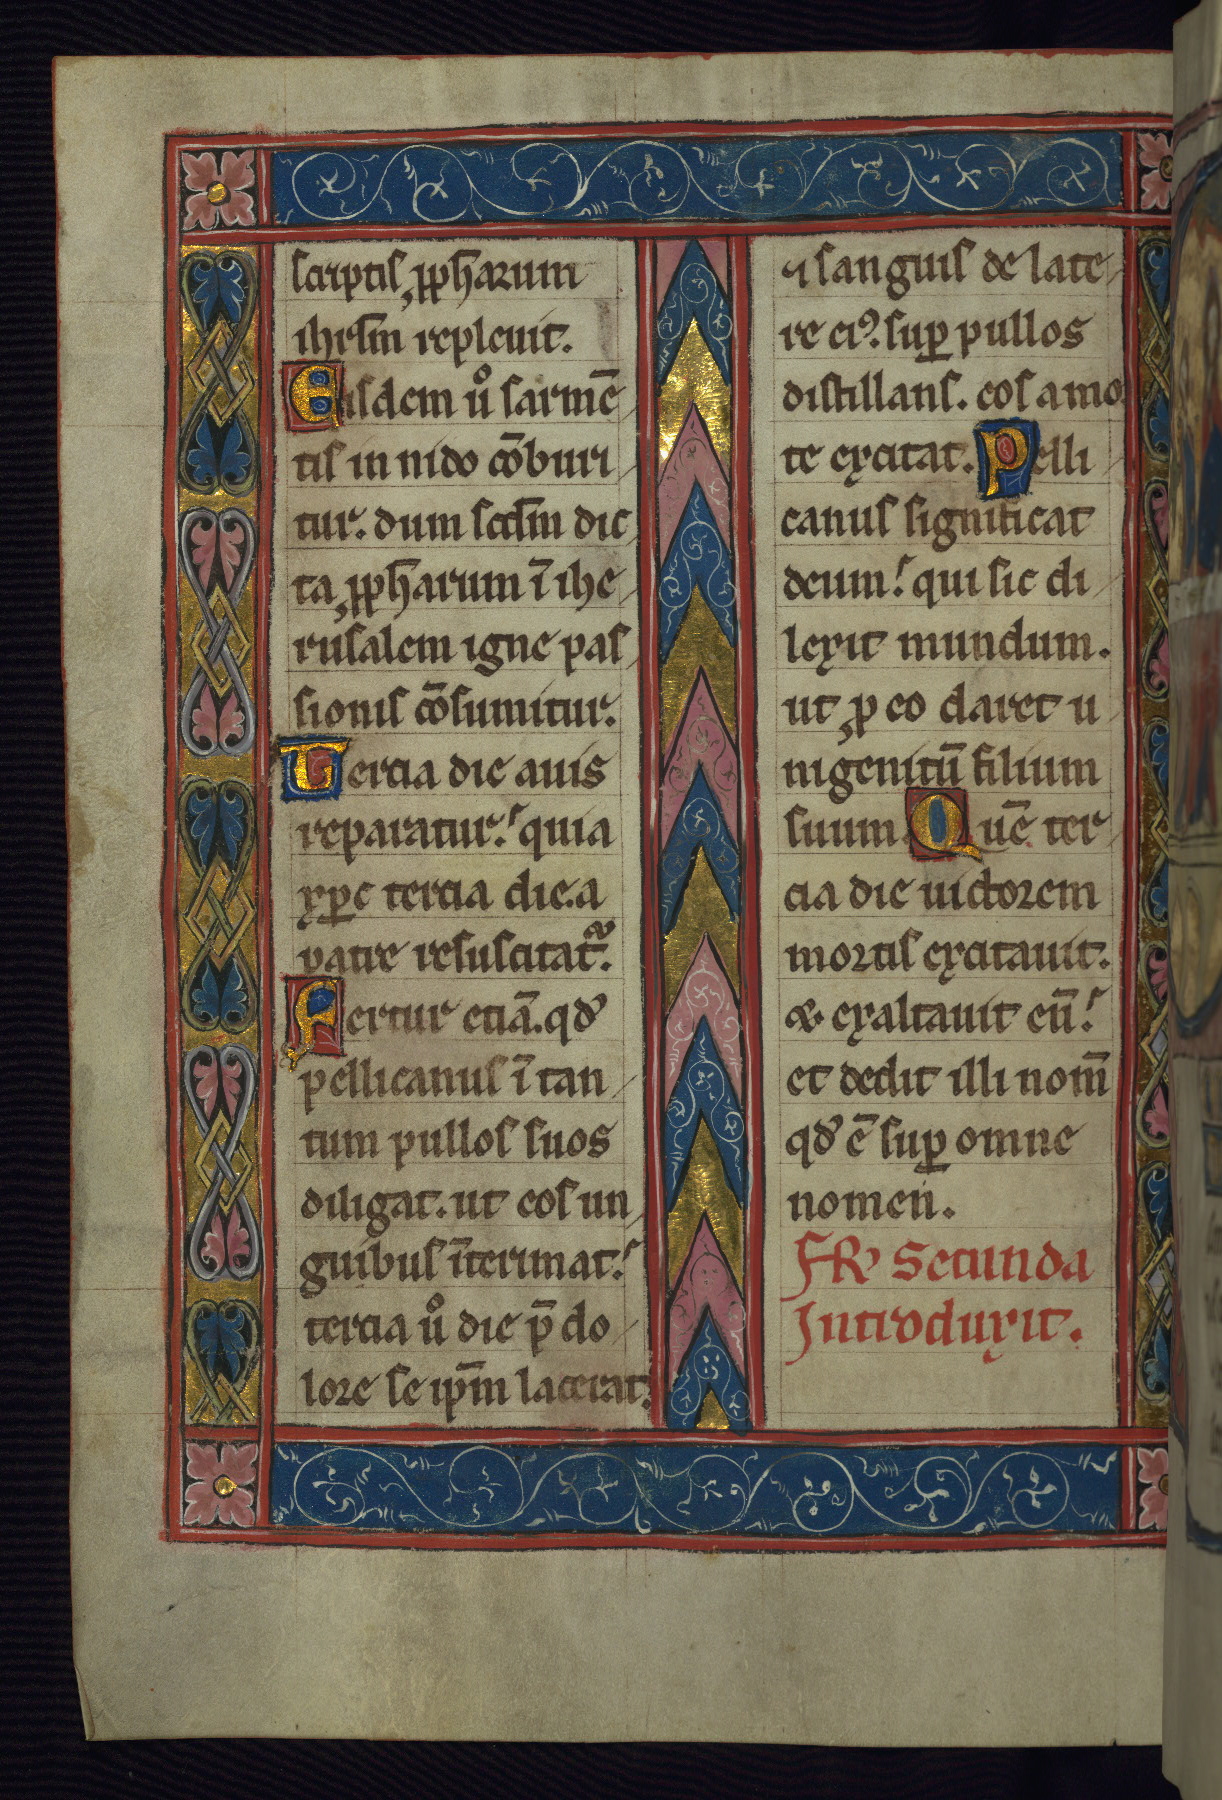 scriptis ꝓpharum
ihrlm repleuit.
Eisdem uͦ sarmē
tis in nido cōburi
tur. dum sctm̄ dic
ta ꝓpharum ī ihe
rusalem igne pas
sionis cōsumitur.
Tercia die auis
reparatur. quia
xp̄c tercia die. a
patre resuscitat᷑.
Fertur etiā. qd̄
pellicanus ī tan
tum pullos suos
diligat. ut eos un
guibus īterimat.
tercia uͦ die p̄ do
lore se ip̄m lacerat.
⁊ sanguis de late
re eiꝰ. suꝑ pullos
distillans. eos a mo
te excitat. Pelli
canus significat
deum. qui sic di
lexit mundum.
ut ꝓ eo daret u
nigenitū filium
suum. Quē ter
cia die uictorem
mortis excitauit.
& exaltauit eū.
et dedit illi nom̄
qd̄ ē suꝑ omne
nomen.
FR Secunda
Introduxit.